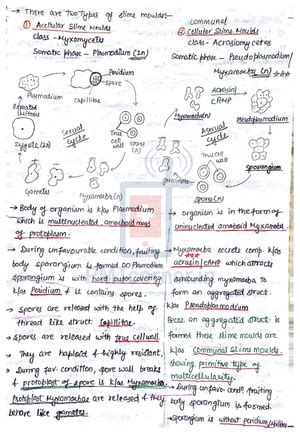 → There are two Types of slime moulds:-
① Acellular Slime Moulds
Class - Myxomycetes
Somatic phase - Plasmodium (2n)
Peridium
spore
Plasmodium
capillitae
Repeated
Mitosis
Sexual
cycle
True
cell
wall
Zygote (2n)
Gametes
Myxamoeba (n)
→ Body of organism is k/as Plasmodium
which is multinucleated, amoeboid mass
of protoplasm.
→ During unfavourable condition, fruiting
body sporangium is formed on Plasmodium.
sporangium is with hard outer covering
k/as Peridium & it contains spores.
→ spores are released with the help of
thread like struct. Capillitae.
→ spores are released with true cell wall.
→ They are haploid & highly resistant.
→ During fav. condition, spore wall breaks
& protoplast of spore is k/as Myxamoeba.
Protoplast Myxamoebae are released & they
behave like gametes.
communal
② Cellular Slime Moulds
class - Acrasiomycetes
Somatic phase - Pseudoplasmodium/
Myxamoeba (n)
ACRASIN/
cAMP
Myxamoeba (n)
Pseudoplasmodium
Asexual
cycle
True
Cell wall
sporangium
germinate
spores (n)
→ organism is in the form of
uninucleated amoeboid Myxamoeba
→ Myxamoeba secretes comp. k/as
acrasin/cAMP which attracts
surrounding myxamoeba to
form an aggregated struct.
k/as Pseudoplasmodium
Becoz. an aggregated struct. is
formed these slime moulds are
k/as Communal Slime moulds,
showing primitive type of
multicellularity.
→ During unfavo. cond., fruiting
body sporangium is formed.
→ sporangium is without peridium/